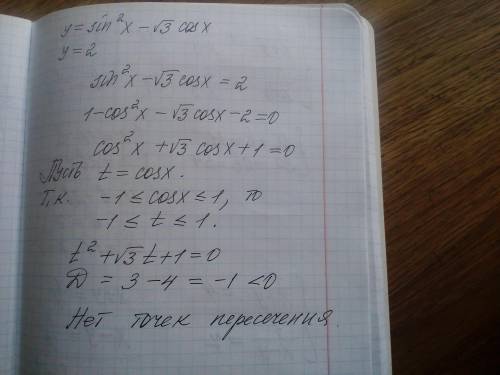 y = sin²x − √3 cosx
y = 2
sin²x − √3 cosx = 2
1−cos²x − √3 cosx − 2 = 0
cos²x + √3 cosx + 1 = 0
Пусть t = cosx.
Т.к. −1 ≤ cosx ≤ 1, то
−1 ≤ t ≤ 1.
t² + √3 t + 1 = 0
D = 3 − 4 = −1 < 0
Нет точек пересечения.